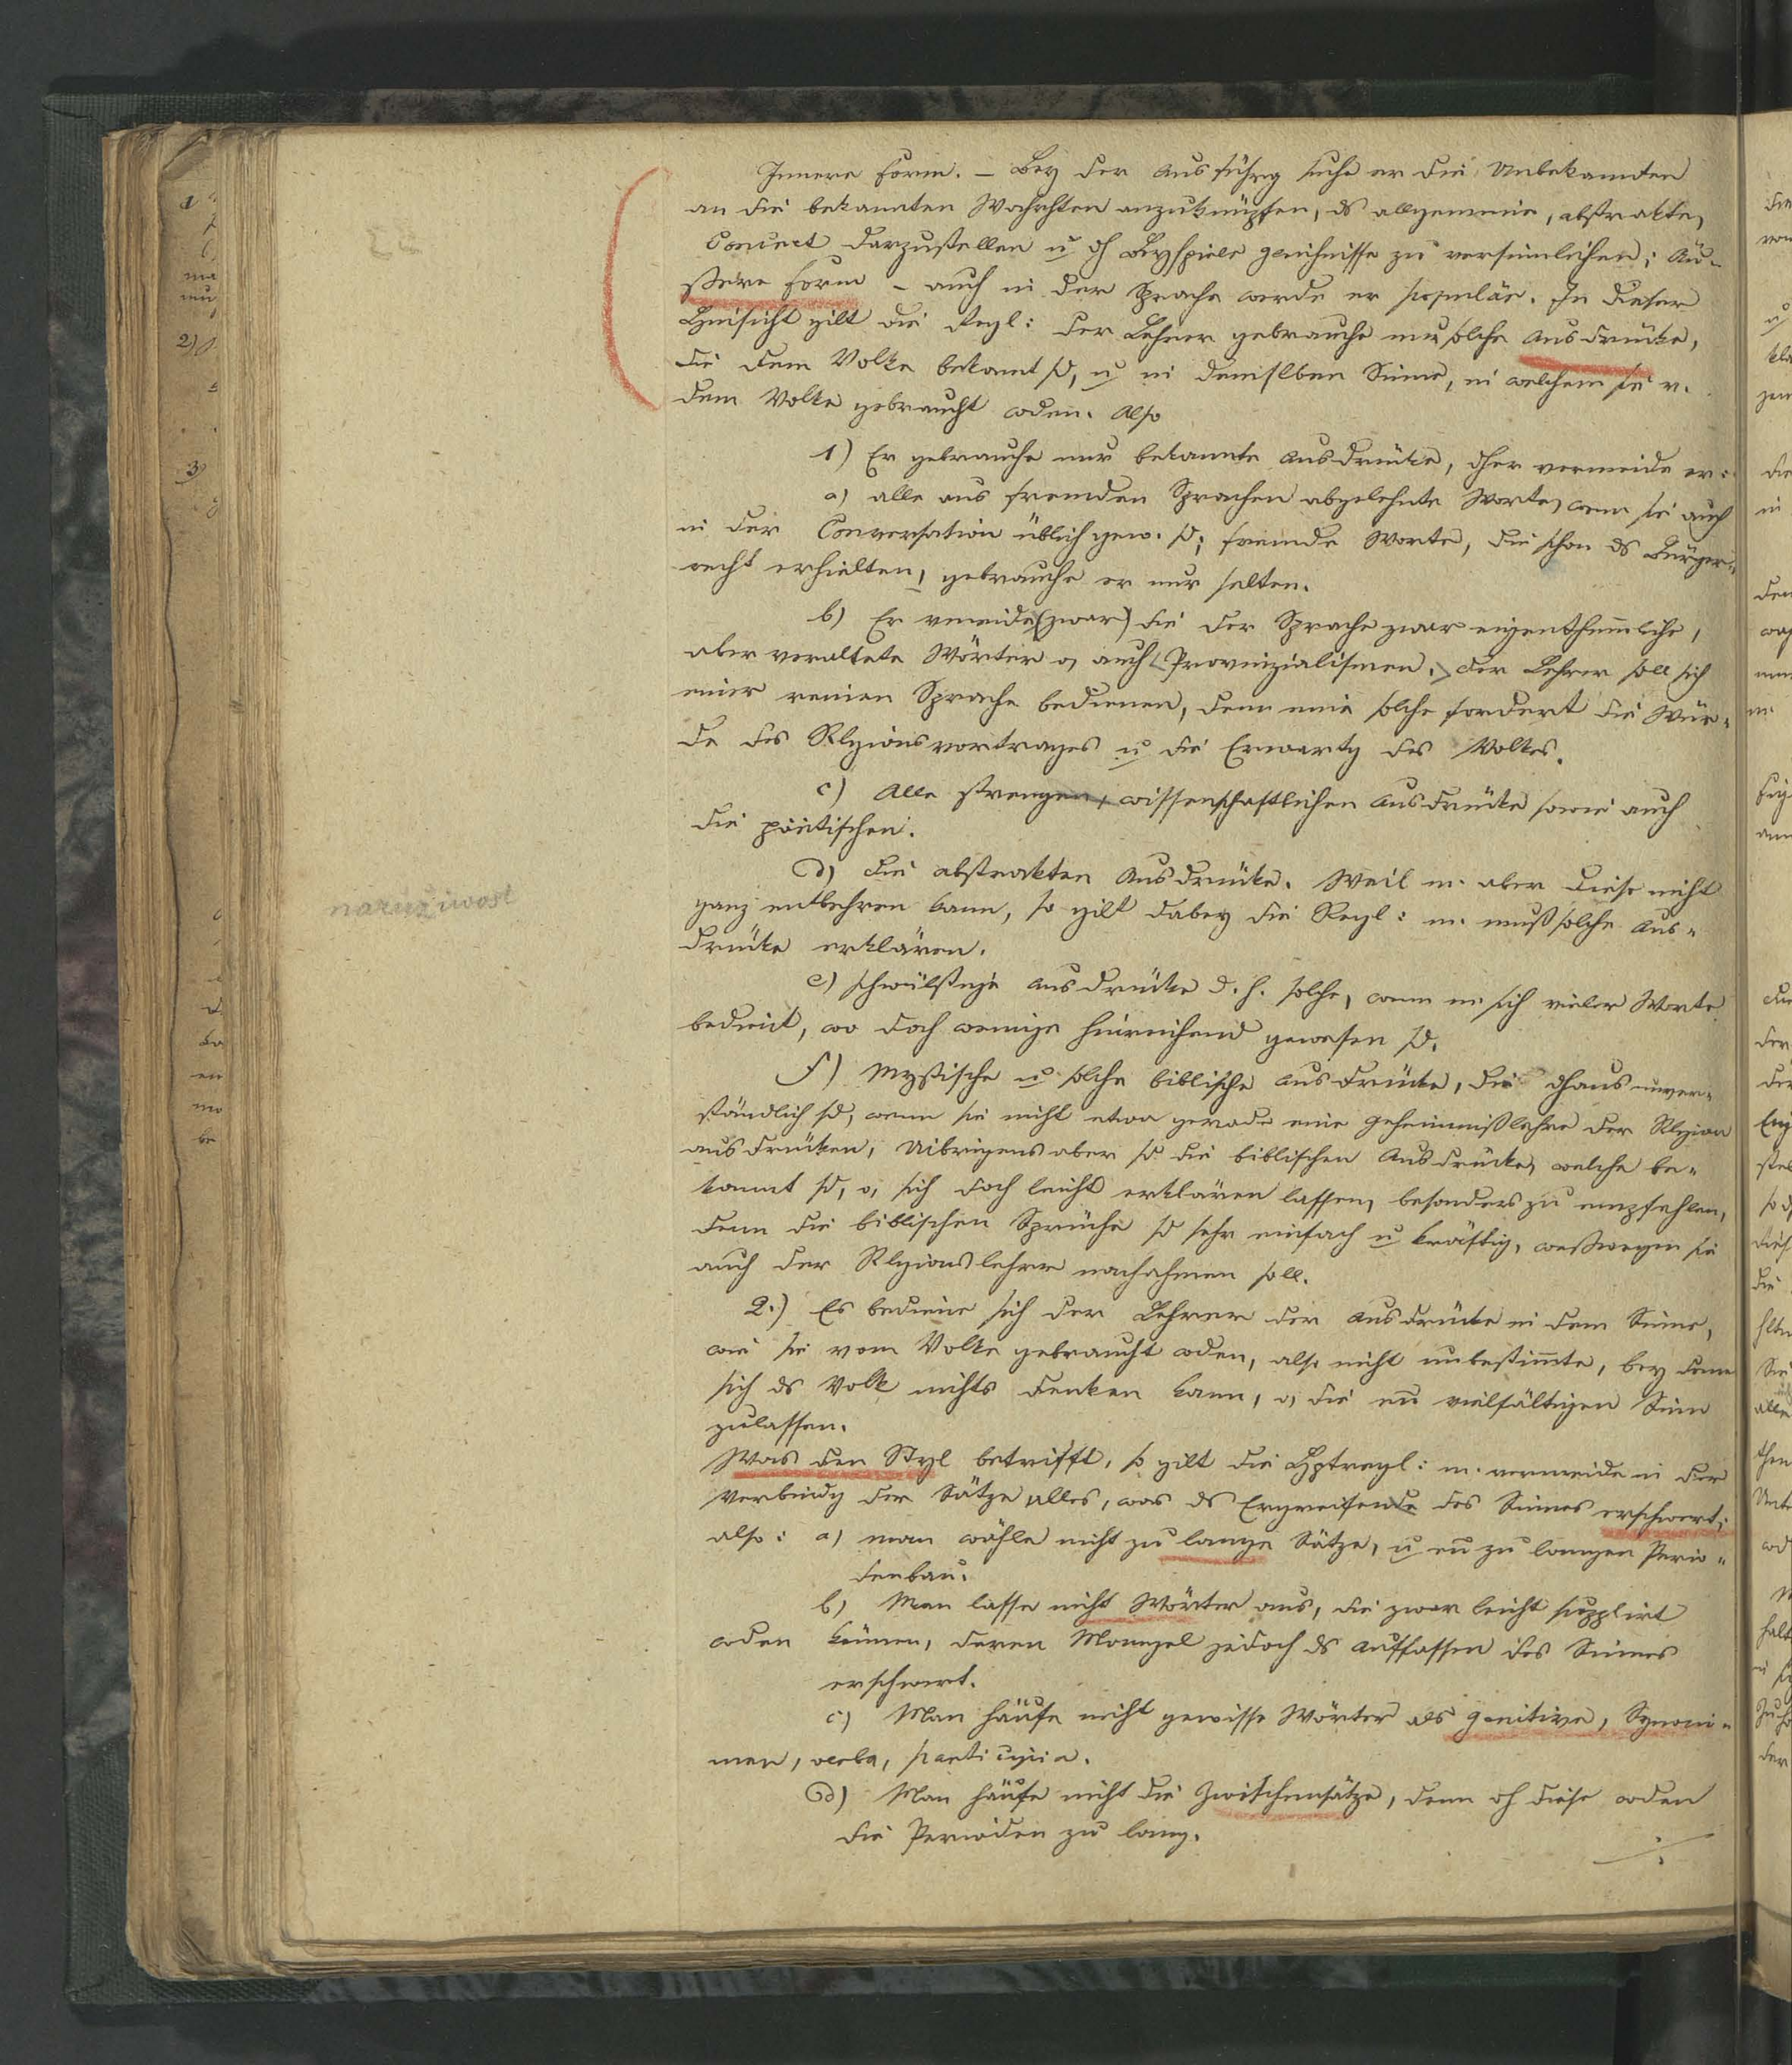 Innere Form. – Bey der Ausführg suche er die Unbekannten
an die bekannten Wahrhten anzuknüpfen, ds allgemeine, abstrakte,
Concret darzustellen u dh Beyspiele gleichnisse zu versinnlichen; Äu-
ßere Form – auch in der Sprache werde er populär. In dieser
Hinsicht gilt die Regl: der Lehrer gebrauche nur solche Ausdrücke,
die dem Volke bekant sd, u in demslben Sinne, in welchem sie v.
dem Volke gebraucht wden. Also
1) Er gebrauche nur bekannte Ausdrücke, dher vermeide er:
a) alle aus fremden Sprachen abgelehnte Worte, wenn sie auch
in der Conversation üblich gew. sd; fremde Worte, die schon ds Bürger-
recht erhielten, gebrauche er nur selten.
b) Er vermeide (zwar) die der Sprache zwar eigenthümliche,
aber veraltete Wörter o, auch Provinzialismen. der Lehrer soll sich
einer reinen Sprache bedienen, denn eine solche fordert die Wür-
de des Rlgionsvortrages u die Erwartg des Volkes.
c) Alle strengen, wissenschaftlichen Ausdrücke sowie auch
die pöetischen.
d) die abstrakten Ausdrücke. Weil m. aber diese nicht
ganz entbehren kann, so gilt dabey die Regl: m. muß solche Aus-
drücke erklären.
naružiwost
e) schwülstige Ausdrücke d. h. solche, wenn m. sich vieler Worte
bedient, wo doch wenige hinreichend gewesen sd.
f) Mystische u solche biblische Ausdrücke, die dhaus unver-
ständlich sd, wenn sie nicht etwa gerade eine Geheimnißlehre der Rlgion
ausdrücken, Uibrigens aber sd die biblischen Ausdrücke, welche be-
kannt sd, o, sich doch leicht erklären lassen, besonders zu empfehlen,
denn die biblischen Sprüche sd sehr einfach u kräftig, weßwegen sie
auch der Rlgionslehrer nachahmen soll.
2.) Es bediene sich der Lehrer der Ausdrücke in dem Sinne,
wie sie vom Volke gebraucht wden, also nicht unbestimte, bey denen
sich ds Volk nichts denken kann, o, die en vielfältigen Sinn
zulassen.
Was den Styl betrifft, so gilt die Hptregl: m. vermeide in der
Verbindg der Sätze alles, was ds Ergreifende des Sinnes erschwert;
also: a) man wähle nicht zu lange Sätze, u en zu langen Perio-
denbau.
b) Man lasse nicht Wörter aus, die zwar leicht supplirt
wden können, deren Mangel jedoch ds Auffassen des Sinnes
erschwert.
c) Man häufe nicht gewisse Wörter als genitive, Synoni-
men, verba, participia.
d) Man häufe nicht die Zwischensätze, denn dh diese wden
die Perioden zu lang.